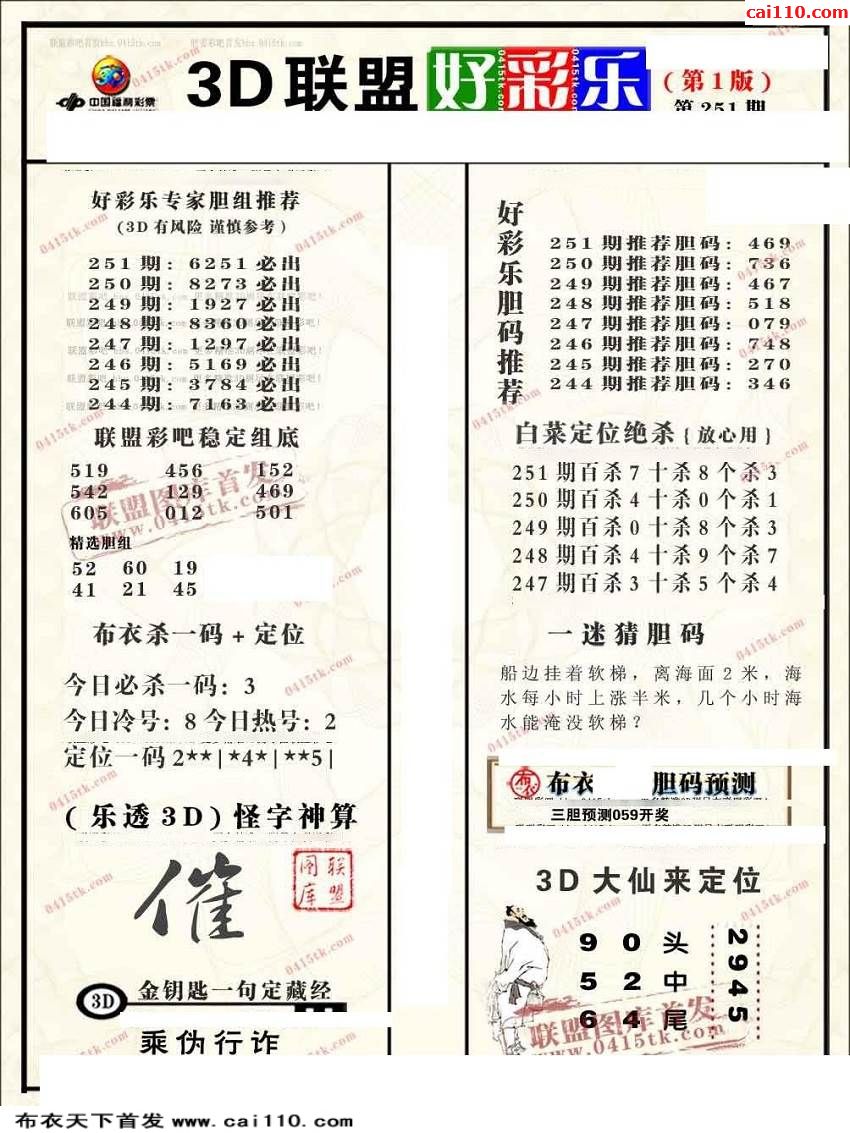 cai110.com
中国福利彩票
3D联盟好彩乐
(第1版)
第251期
好彩乐专家胆组推荐
(3D有风险 谨慎参考)
251期：6251必出
250期：8273必出
249期：1927必出
248期：8360必出
247期：1297必出
246期：5169必出
245期：3784必出
244期：7163必出
联盟彩吧稳定组底
519 456 152
542 129 469
605 012 501
精选胆组
52 60 19
41 21 45
布衣杀一码+定位
今日必杀一码：3
今日冷号：8 今日热号：2
定位一码 2**|*4*|**5|
(乐透3D)怪字神算
催
联盟图库
3D 金钥匙一句定藏经
乘伪行诈
好彩乐胆码推荐
251期推荐胆码：469
250期推荐胆码：736
249期推荐胆码：467
248期推荐胆码：518
247期推荐胆码：079
246期推荐胆码：748
245期推荐胆码：270
244期推荐胆码：346
白菜定位绝杀{放心用}
251期百杀7十杀8个杀3
250期百杀4十杀0个杀1
249期百杀0十杀8个杀3
248期百杀4十杀9个杀7
247期百杀3十杀5个杀4
一迷猜胆码
船边挂着软梯，离海面2米，海
水每小时上涨半米，几个小时海
水能淹没软梯？
布衣 布衣 胆码预测
三胆预测059开奖
3D大仙来定位
9 0 头
5 2 中
6 4 尾
2945
联盟图库首发
www.0415tk.com
布衣天下首发 www.cai110.com